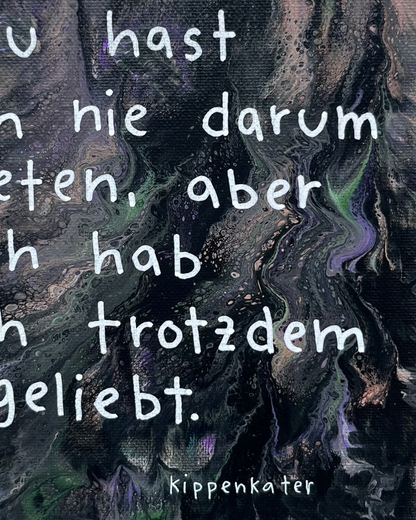 u hast
n nie darum
eten, aber
h hab
h trotzdem
geliebt.
kippenkater